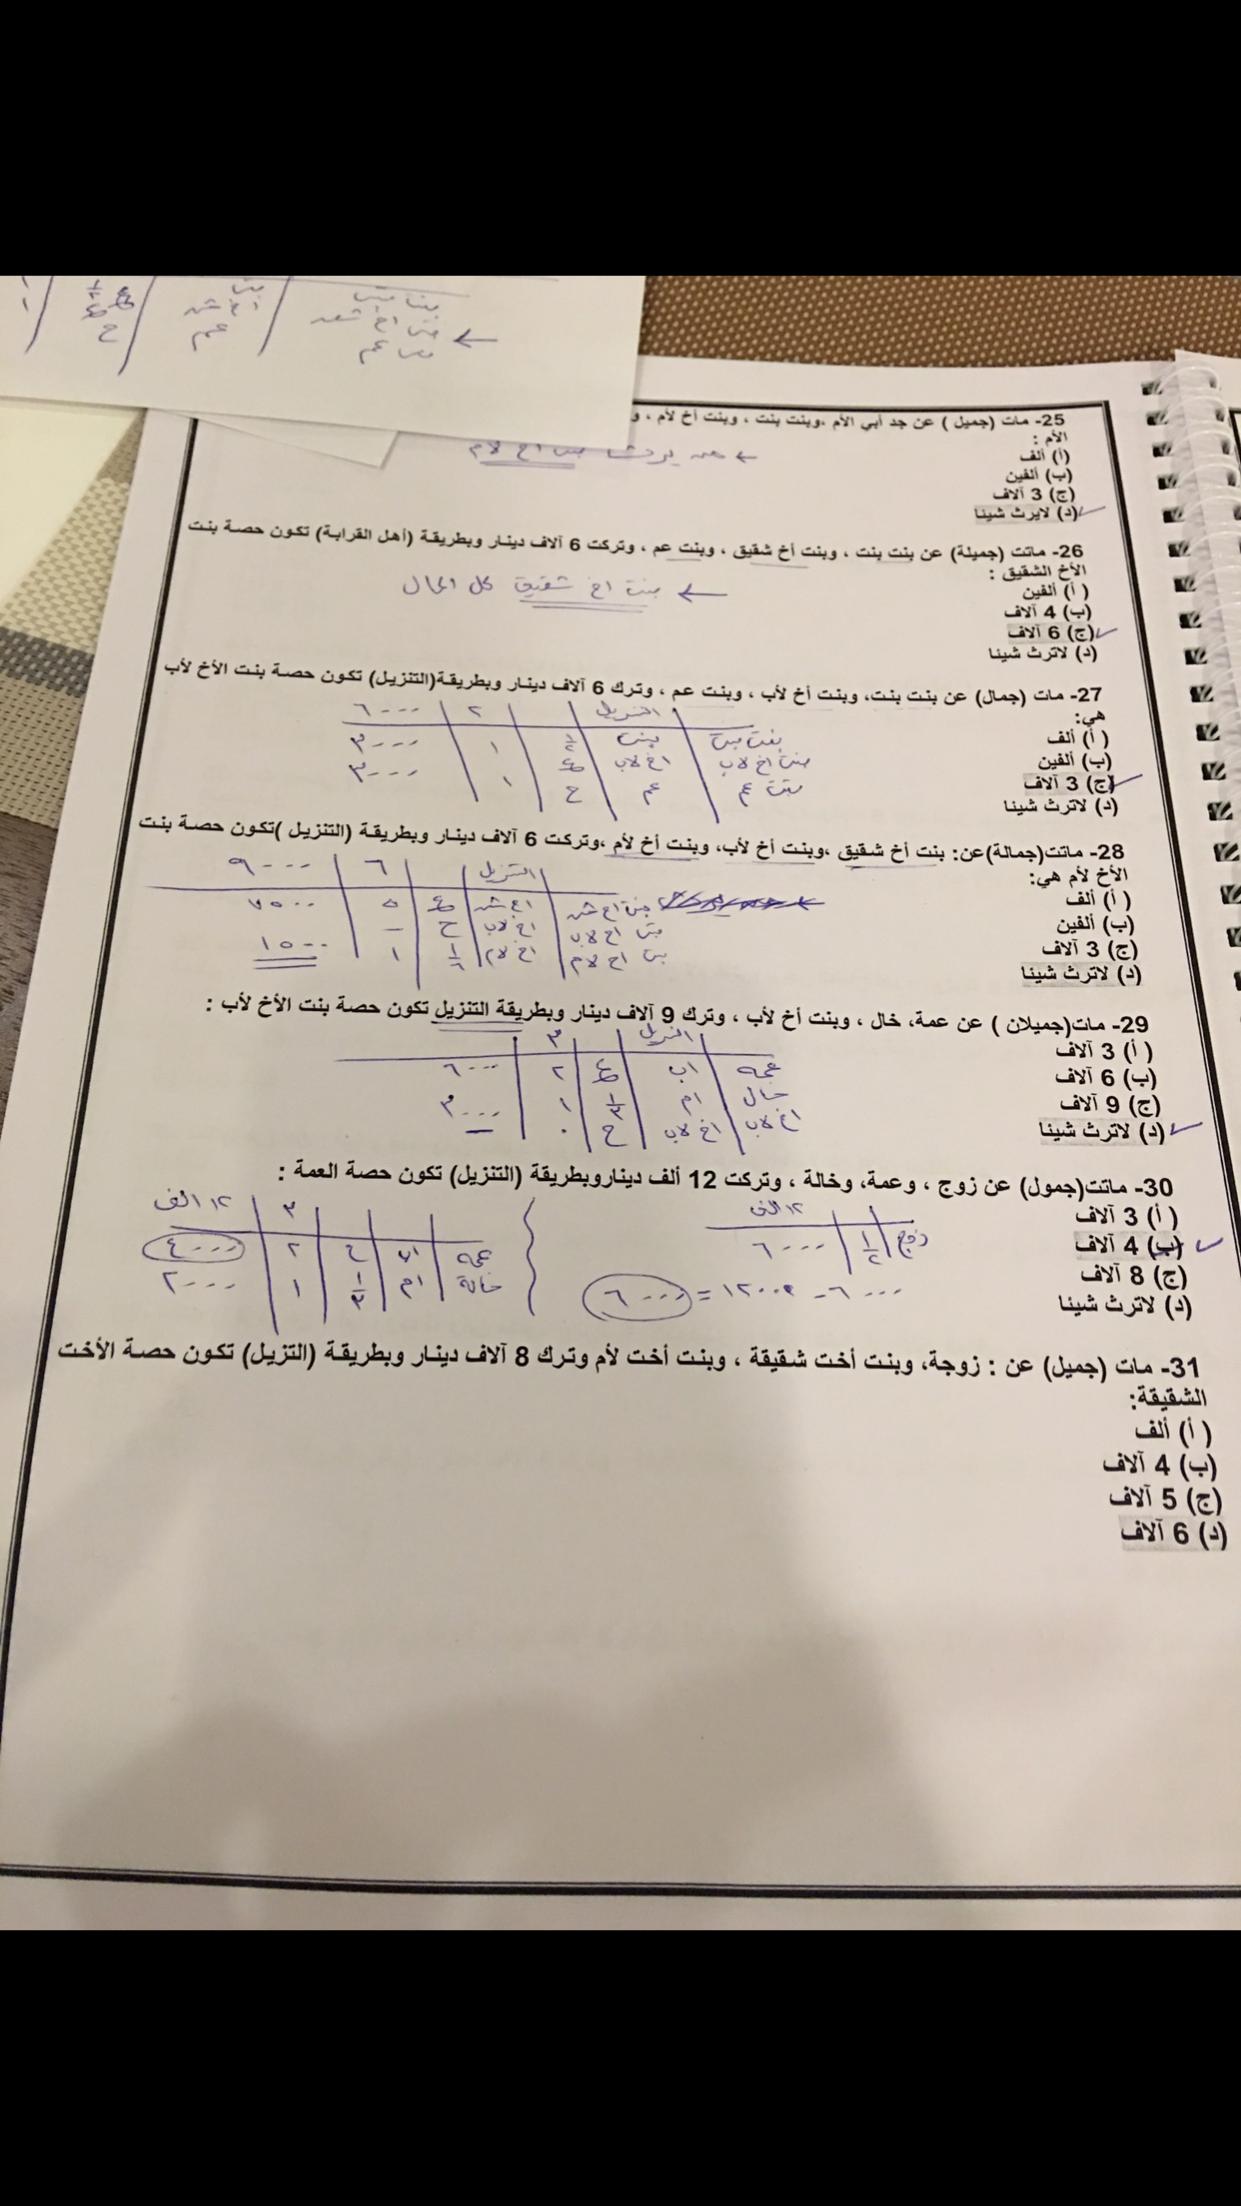 بنت بنت
بنت
بنت أخ شق
أخ شق
بنت عم
عم
ح
25- مات (جميل ) عن جد أبي الأم ،وبنت بنت ، وبنت أخ لأم ، و
الأم :
(أ) ألف
(ب) ألفين
(ج) 3 آلاف
(د) لايرث شيئا
بنت اخ لأم
26- ماتت (جميلة) عن بنت بنت ، وبنت أخ شقيق ، وبنت عم ، وتركت 6 آلاف دينار وبطريقة (أهل القرابة) تكون حصة بنت
الأخ الشقيق :
( أ) ألفين
(ب) 4 آلاف
(ج) 6 آلاف
(د) لاترث شيئا
← بنت اخ شقيق كل المال
27- مات (جمال) عن بنت بنت، وبنت أخ لأب ، وبنت عم ، وترك 6 آلاف دينار وبطريقة(التنزيل) تكون حصة بنت الأخ لأب
هي:
( أ) ألف
(ب) ألفين
(ج) 3 آلاف
(د) لاترث شيئا
التنزيل ٢ ٦٠٠٠
بنت بنت بنت ١/٢ ١ ٣٠٠٠
بنت اخ لاب اخ لاب ع ١ ٣٠٠٠
بنت عم عم ح
28- ماتت(جمالة)عن: بنت أخ شقيق ،وبنت أخ لأب، وبنت أخ لأم ،وتركت 6 آلاف دينار وبطريقة (التنزيل )تكون حصة بنت
الأخ لأم هي:
( أ) ألف
(ب) ألفين
(ج) 3 آلاف
(د) لاترث شيئا
التنزيل ٦ ٩٠٠٠
بنت اخ شق اخ شق ع ٥ ٧٥٠٠
بنت اخ لاب اخ لاب ح –
بنت اخ لام اخ لام ١/٦ ١ ١٥٠٠
29- مات(جميلان ) عن عمة، خال ، وبنت أخ لأب ، وترك 9 آلاف دينار وبطريقة التنزيل تكون حصة بنت الأخ لأب :
( أ) 3 آلاف
(ب) 6 آلاف
(ج) 9 آلاف
(د) لاترث شيئا
التنزيل ٣
عمه اب ع ٢ ٦٠٠٠
خال ام ١/٣ ١ ٣٠٠٠
اخ لاب اخ لاب ح ٠
30- ماتت(جمول) عن زوج ، وعمة، وخالة ، وتركت 12 ألف ديناروبطريقة (التنزيل) تكون حصة العمة :
( أ) 3 آلاف
(ب) 4 آلاف
(ج) 8 آلاف
(د) لاترث شيئا
١٢ الف
زوج ١/٢ ٦٠٠٠
٦٠٠٠ = ١٢٠٠٠ - ٦٠٠٠
٣ ١٢ الف
عمه اب ع ٢ ٤٠٠٠
خالة ام ١/٣ ١ ٢٠٠٠
31- مات (جميل) عن : زوجة، وبنت أخت شقيقة ، وبنت أخت لأم وترك 8 آلاف دينار وبطريقة (التزيل) تكون حصة الأخت
الشقيقة:
( أ) ألف
(ب) 4 آلاف
(ج) 5 آلاف
(د) 6 آلاف